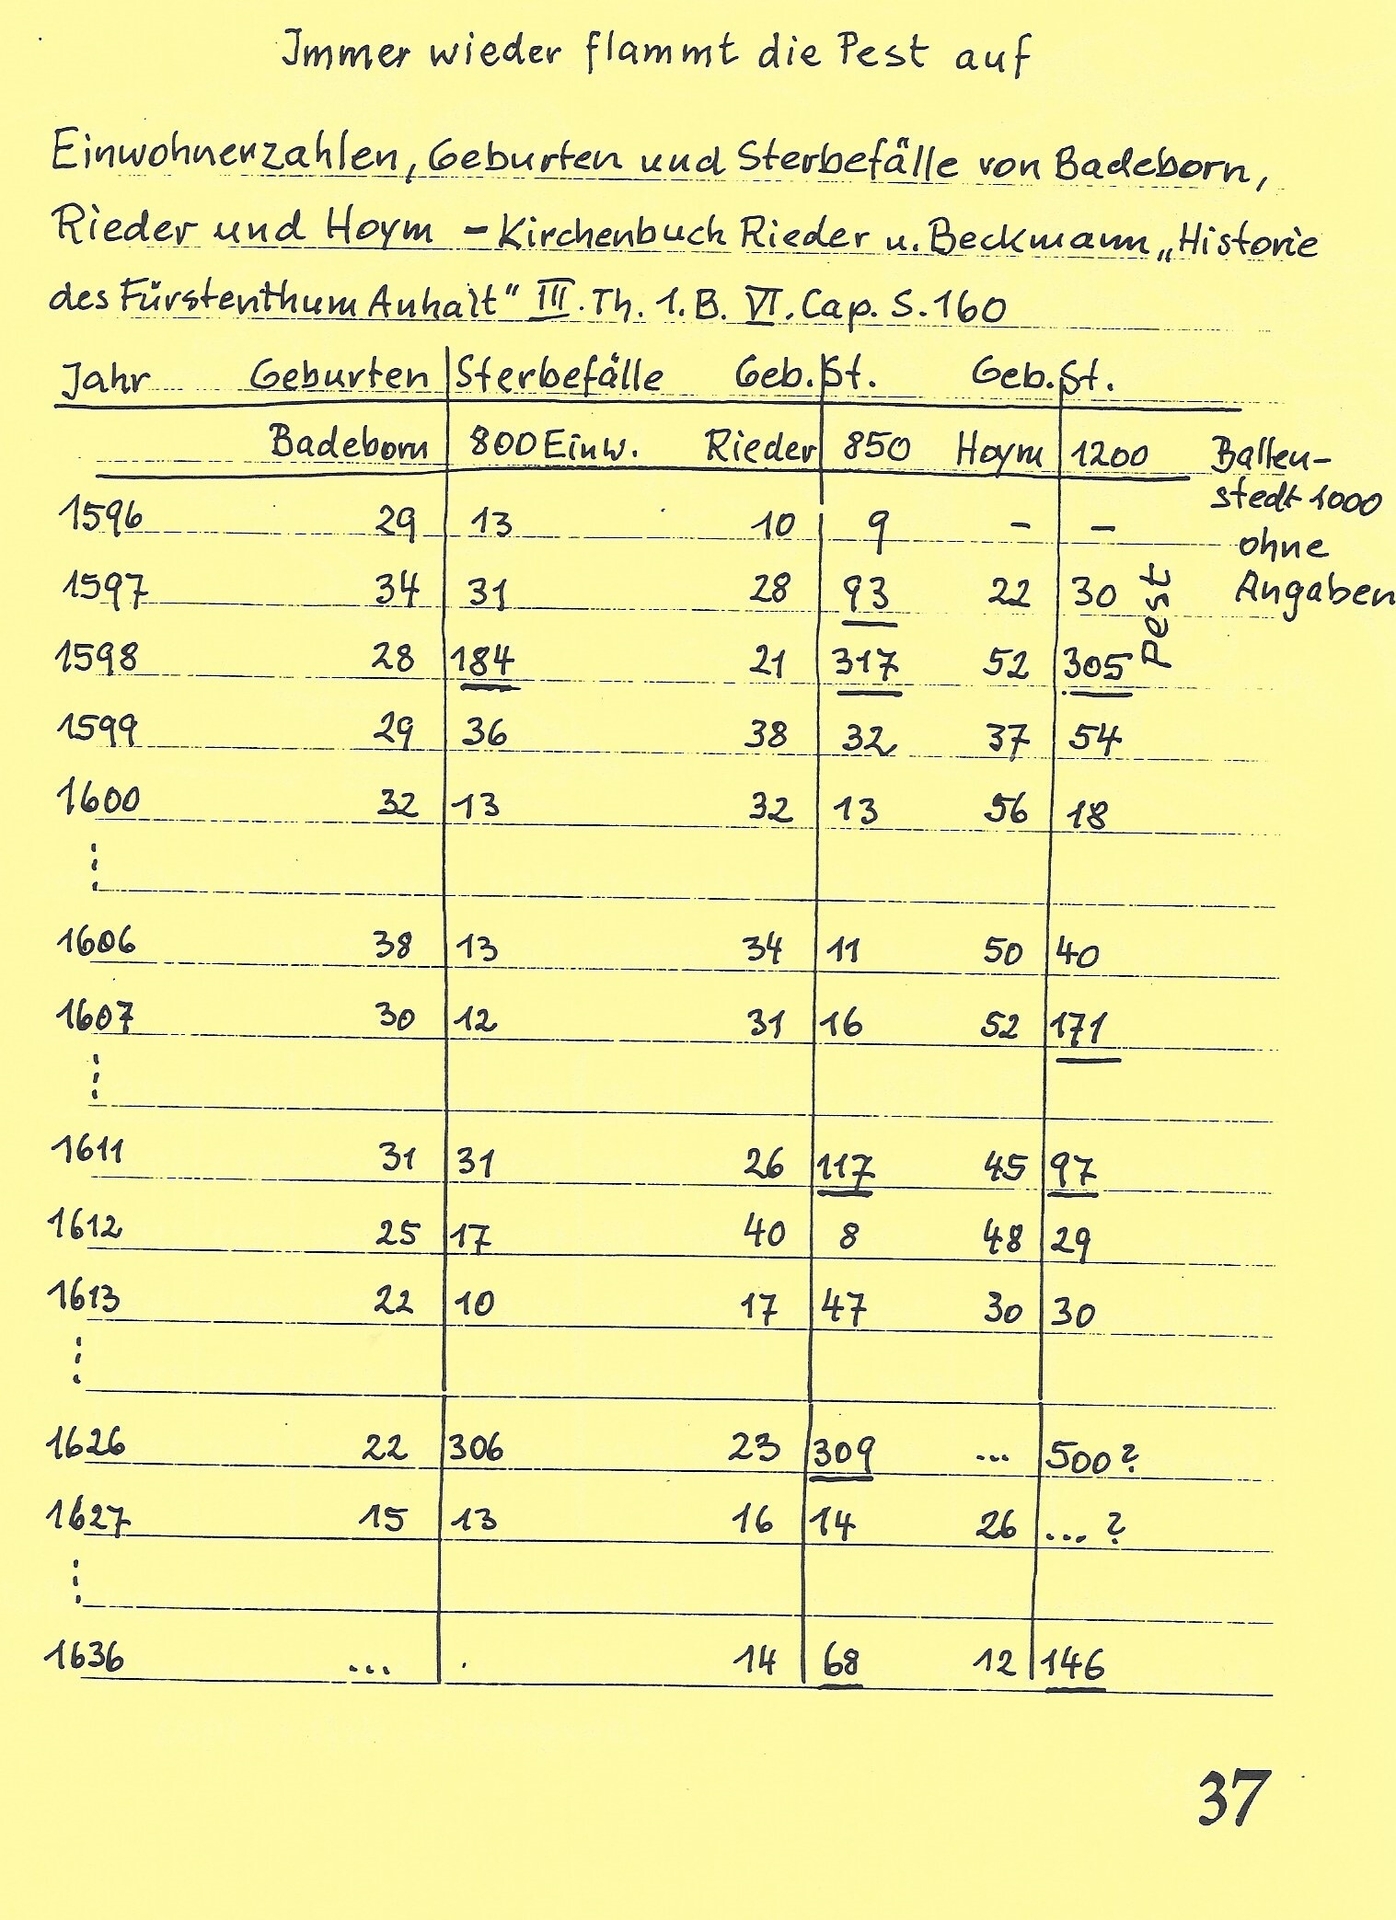 Immer wieder flammt die Pest auf
Einwohnerzahlen, Geburten und Sterbefälle von Badeborn,
Rieder und Hoym – Kirchenbuch Rieder u. Beckmann „Historie
des Fürstenthum Anhalt“ III. Th. 1. B. VI. Cap. S. 160
Jahr Geburten Sterbefälle Geb. St. Geb. St.
Badeborn 800 Einw. Rieder 850 Hoym 1200 Ballen-
stedt 1000
ohne
Angaben
1596 29 13 10 9 – –
1597 34 31 28 93 22 30
Pest
1598 28 184 21 317 52 305
1599 29 36 38 32 37 54
1600 32 13 32 13 56 18
1606 38 13 34 11 50 40
1607 30 12 31 16 52 171
1611 31 31 26 117 45 97
1612 25 17 40 8 48 29
1613 22 10 17 47 30 30
1626 22 306 23 309 ... 500?
1627 15 13 16 14 26 ... ?
1636 ... . 14 68 12 146
37